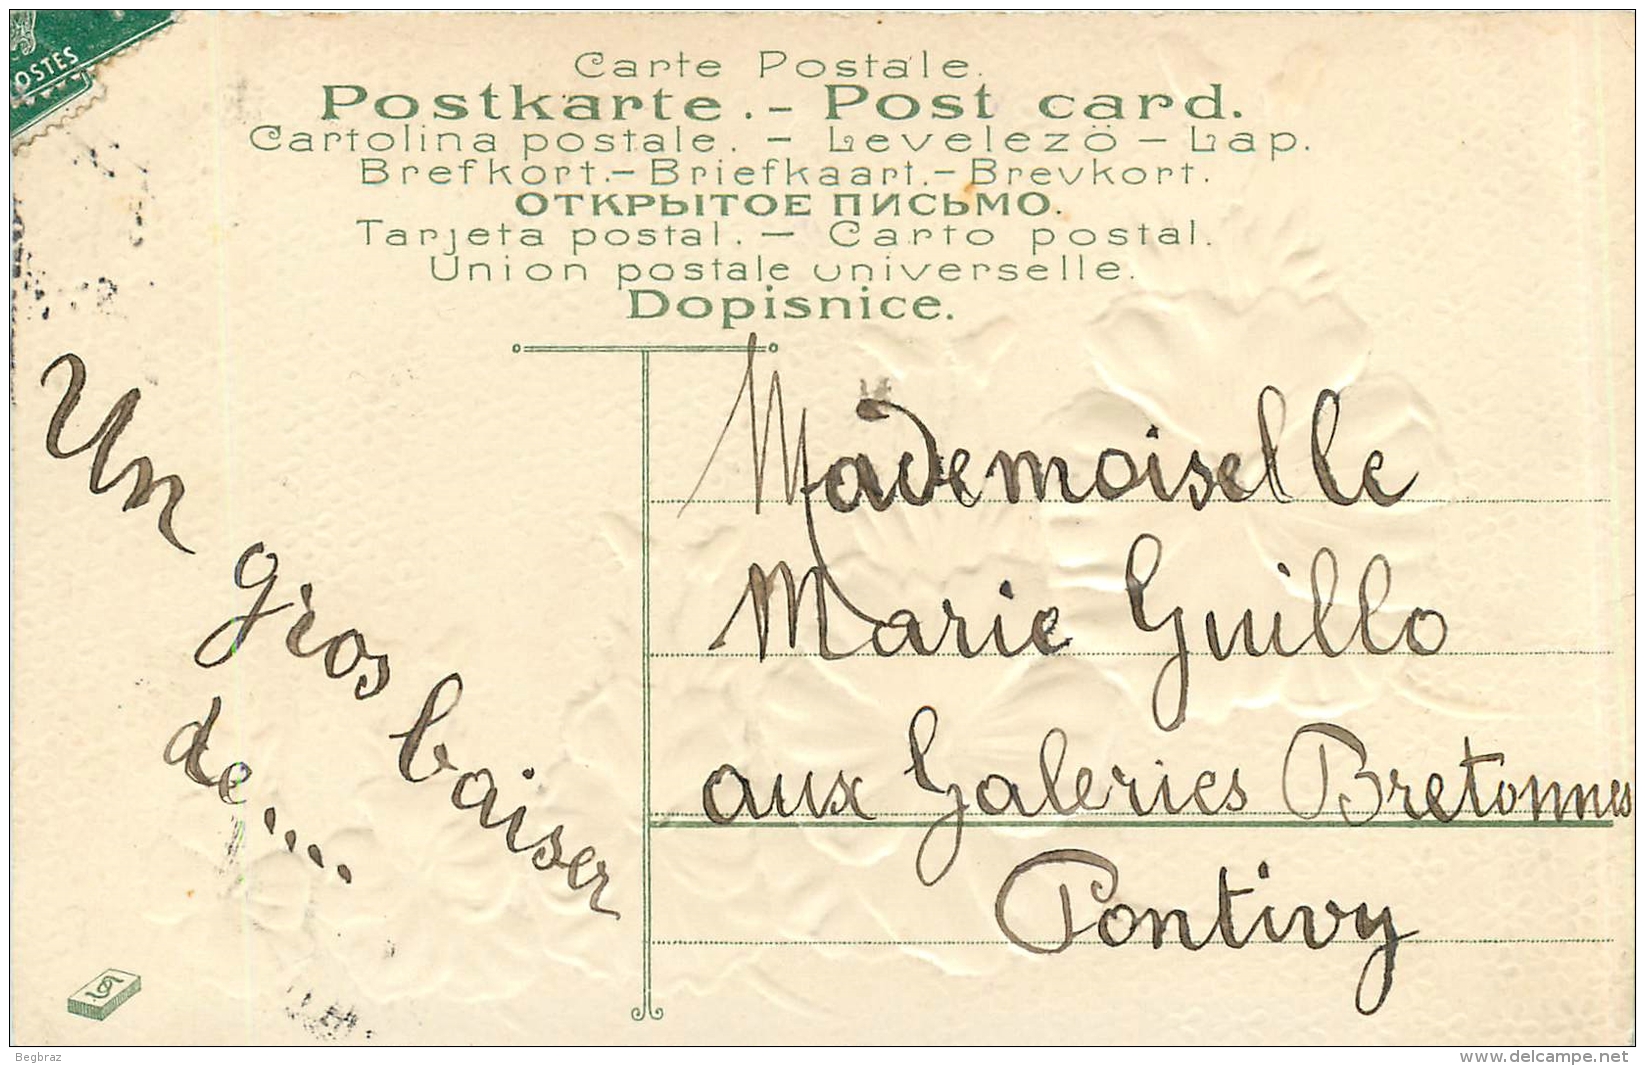 OSTES
Carte Postale.
Postkarte.- Post card.
Cartolina postale. - Levelezö - Lap.
Brefkort.- Briefkaart.- Brevkort.
ОТКРЫТОЕ ПИСЬМО.
Tarjeta postal. - Carto postal.
Union postale universelle.
Dopisnice.
Un gros baiser
de....
Mademoiselle
Marie Guillo
aux Galeries Bretonnes
Pontivy
Begbraz
www.delcampe.net